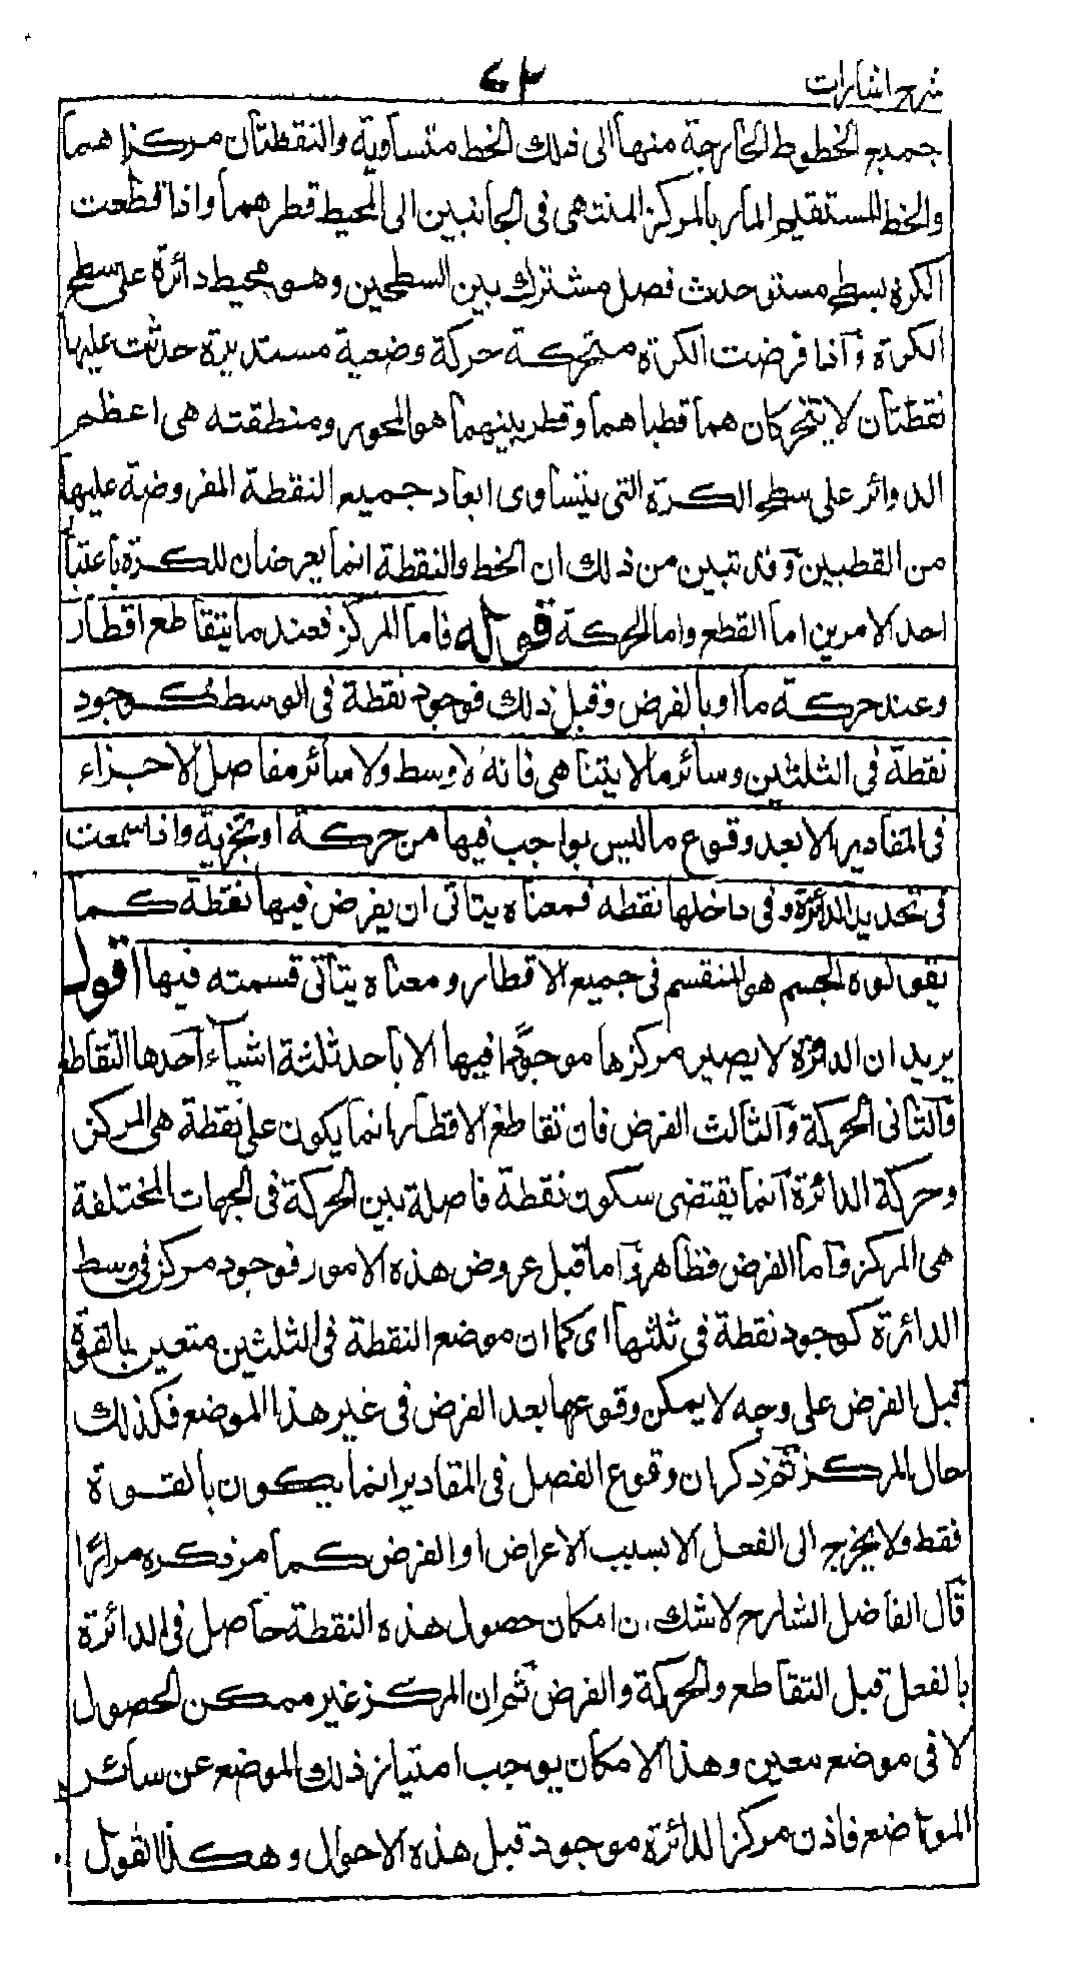 شرح اشارات
٤٢
جميع الخطوط الخارجة منها الى ذلك الخط متساوية والنقطتان مركزاهما
والخط المستقيم المار بالمركز المنتهى فى الجانبين الى المحيط قطرهما واذا قطعت
الكرة بسطح مستو حدث فصل مشترك بين السطحين وهو محيط دائرة على سطح
الكرة وآذا فرضت الكرة متحركة حركة وضعية مستديرة حدثت عليها
نقطتان لا يتحركان هما قطباهما وقطر بينهما هو المحور ومنطقته هى اعظم
الدوائر على سطح الكرة التى يتساوى ابعاد جميع النقطة المفروضة عليها
من القطبين وقد تبين من ذلك ان الخط والنقطة انما يعرضان للكرة باعتبا
احد الامرين اما القطع واما الحركة قوله فاما المركز فعند ما يتقاطع اقطار
وعند حركة ما او بالفرض وقبل ذلك فوجود نقطة فى الوسط كوجود
نقطة فى الثلثين وسائر مالا يتناهى فانه لا وسط ولا سائر مفاصل الاجزاء
فى المقادير الا بعد وقوع ما ليس بواجب فيها من حركة او تجزية واذا سمعت
فى تحديد الدائرة وفى داخلها نقطه فمعناه يتاتى ان يفرض فيها نقطة كما
يقولوه الجسم هو المنقسم فى جميع الاقطار ومعناه يتأتى قسمته فيها اقول
يريد ان الدائرة لا يصير مركزها موجودا فيها الا باحد ثلثة اشياء آحدها التقاطع
وآلثانى الحركة وآلثالث الفرض فان تقاطع الاقطار انما يكون على نقطة هى المركز
وحركة الدائرة آنما يقتضى سكون نقطة فاصلة بين الحركة فى الجهات المختلفة
هى المركز وآما الفرض فظاهر وآما قبل عروض هذه الامور فوجود مركز فى وسط
الدائرة كوجود نقطة فى ثلثها اى كما ان موضع النقطة فى الثلثين متعين بالقوة
قبل الفرض على وجه لا يمكن وقوعها بعد الفرض فى غير هذا الموضع فكذلك
حال المركز ثم ذكر ان وقوع الفصل فى المقادير انما يكون بالقوة
فقط ولا يخرج الى الفعل الا بسبب الاعراض او الفرض كما مر ذكره مرارًا
قال الفاضل الشارح لا شك ان امكان حصول هذه النقطة حاصل فى الدائرة
بالفعل قبل التقاطع والحركة والفرض ثم ان المركز غير ممكن الحصول
لا فى موضع معين وهذا الامكان يوجب امتياز ذلك الموضع عن سائر
المواضع فاذن مركز الدائرة موجود قبل هذه الاحوال وهكذا القول